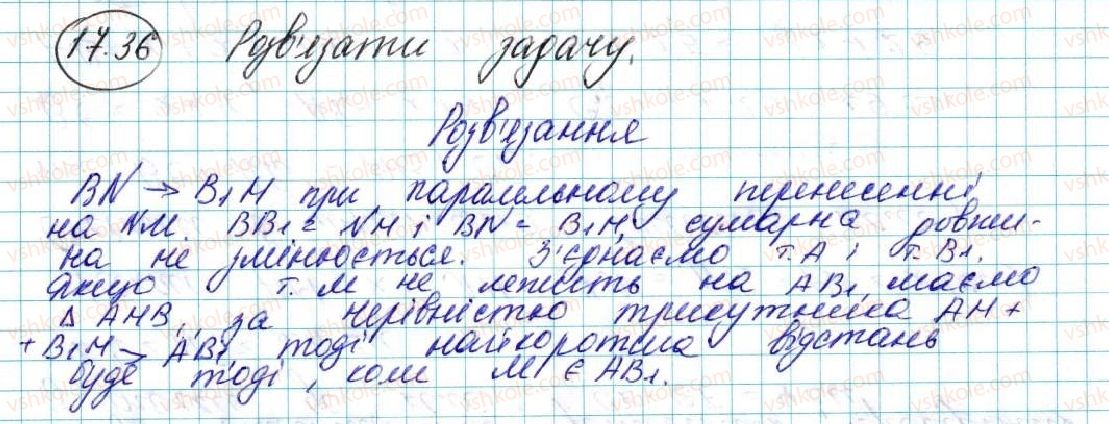 17.36 Розв'язати задачу.
Розв'язання
BN → B₁M при паралельному перенесенні
на NM. BB₁ = NM і BN = B₁M, сумарна довжи-
на не змінюється. З'єднаємо т. A і т. B₁.
Якщо т. M не лежить на AB₁, маємо
Δ AMB₁, за нерівністю трикутника AM +
+ B₁M > AB₁, тоді найкоротша відстань
буде тоді, коли M ∈ AB₁.